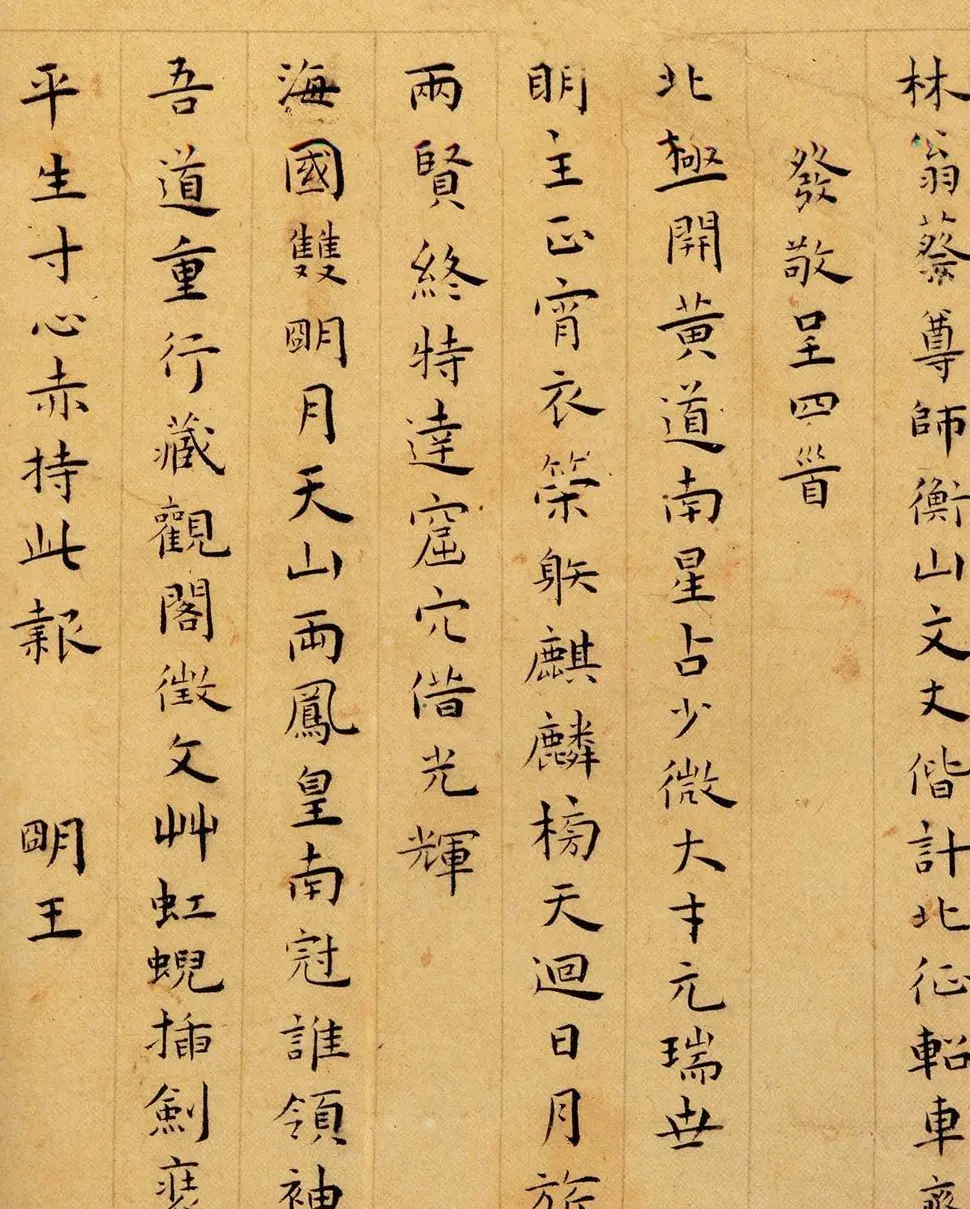 林翁蔡尊師衡山文丈偕計北征軺車齊
發敬呈四首
北極開黃道南星占少微大才元瑞世
明主正宵衣榮躲麒麟榜天迴日月旂
兩賢終特達窟穴借光輝
海國雙明月天山兩鳳皇南冠誰領袖
吾道重行藏觀閣徵文艸虹蜺插劍裝
平生寸心赤持此報 明王